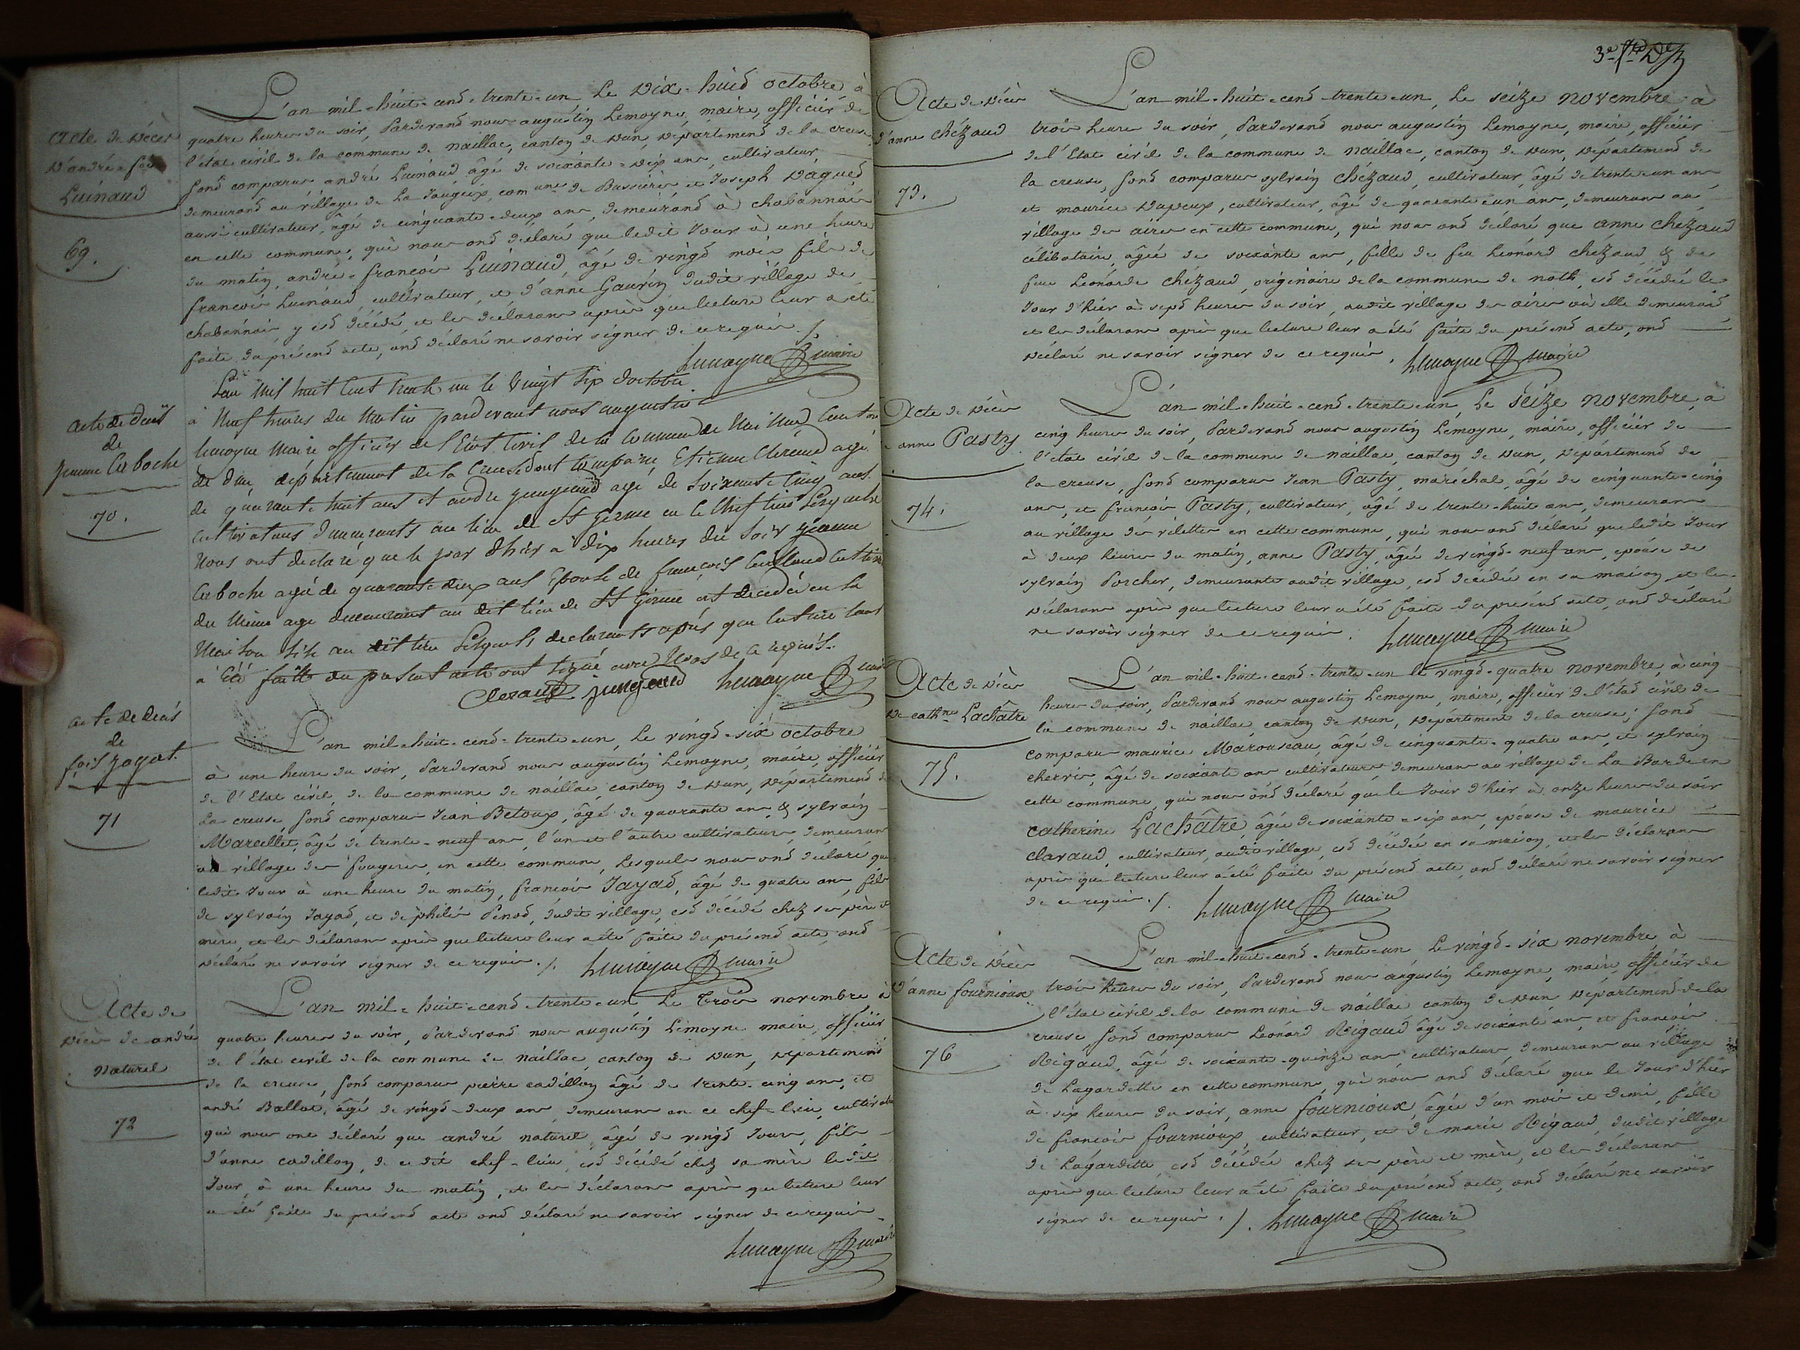 acte de décès
d'andré-fois
Luinaud
69.
L'an mil-huit-cent-trente-un le dix-huit octobre à
quatre heures du soir, Pardevant nous augustin Lemoyne, maire, officier de
l'état civil de la commune de naillac, canton de Dun, département de la creuse
sont comparus andré Luinaud âgé de soixante-dix ans, cultivateur,
demeurant au village de La commune de Bussière et Joseph
aussi cultivateur, âgé de cinquante-deux ans, demeurant à chabannais
en cette commune, qui nous ont déclaré que ledit Jour à une heure
du matin, andré-françois Luinaud, âgé de vingt mois, fils de
françois Luinaud, cultivateur, et d'anne Gaurin dudit village de
chabannais, y est décédé, et les déclarans après que lecture leur a été
faite du présent acte, ont déclaré ne savoir signer de ce requis ./.
Lemoyne maire
acte de décès
de
jeanne Corboche
70.
L'an mil huit cent trente un le vingt six octobre
à neuf heures du matin pardevant nous augustin
Lemoyne Maire officier de l'Etat Civil de la Commune de Naillac Canton
de Dun département de la Creuse sont comparu Etienne Claraud agé
de quarante huit ans et andré jeungeaud agé de soixante cinq ans
cultivateurs demeurants au lieu de St Germe en le Chef lieu lesquels
Nous ont declaré que le jour d'hier à dix heures du soir jeanne
Corboche agé de quarante deux ans Epouse de françois Cultiv
du même age demeurant au dit lieu de St Germe est decedée en sa
Maison Sise au dit lieu lesquels declarants après que lecture leur
à Eté faitte du présent acte ont signé avec Nous de ce requis.
Claraud jeungeaud Lemoyne Maire
acte de décès
de
fois Jayat
71
L'an mil-huit-cent-trente-un, le vingt-six octobre
à une heure du soir, Pardevant nous augustin Lemoyne, maire, officier
de l'Etat civil, de la commune de naillac, canton de Dun, département de
la creuse, sont comparus Jean Betoux, âgé de quarante ans, & sylvain
Marcellet, âgé de trente-neuf ans, l'un et l'autre cultivateurs, demeurans
au village des fougeres, en cette commune, lesquels nous ont déclaré que
ledit Jour à une heure du matin, françois Jayat, âgé de quatre ans, fils
de sylvain Jayat, et de philis Penot, dudit village, est décédé chez ses père et
mère, et les déclarans après que lecture leur a été faite du présent acte, ont
déclaré ne savoir signer de ce requis ./. Lemoyne Maire
Acte de
décès de andré
naturel
72
L'an mil-huit-cent-trente-un, Le trois novembre à
quatre heures du soir, Pardevant nous augustin Lemoyne maire, officier
de l'état civil de la commune de naillac canton de Dun, département
de la creuse, sont comparus pierre cadillon âgé de trente-cinq ans, et
andré Ballot, âgé de vingt-deux ans, demeurans en ce chef-lieu, cultivateurs
qui nous ont déclaré que andré naturel, âgé de vingt Jours, fils
d'anne cadillon, de ce dit chef-lieu, est décédé chez sa mère ledit
Jour, à une heure du matin, et les déclarans après que lecture leur
a été faite du présent acte ont déclaré ne savoir signer de ce requis
Lemoyne maire
3e
Acte de décès
d'anne chézaud
73.
L'an mil-huit-cent-trente-un, Le seize novembre à
trois heures du soir, Pardevant nous augustin Lemoyne, maire, officier
de l'Etat civil de la commune de naillac, canton de Dun, département de
la creuse, sont comparus sylvain chézaud, cultivateur, âgé de trente-un ans
et maurice Dupeux, cultivateur, âgé de quarante-un ans, demeurans au
village des aires en cette commune, qui nous ont déclaré que anne chézaud
célibataire, âgée de soixante ans, fille de feu Léonard chézaud & de
feue Léonarde chézaud, originaire de la commune de noth, est décédée le
Jour d'hier à sept heures du soir, audit village des aires où elle demeurait
et les déclarans après que lecture leur a été faite du présent acte, ont
déclaré ne savoir signer de ce requis. Lemoyne Maire
Acte de décès
anne Pasty
74.
L'an mil-huit-cent-trente-un, Le seize novembre, à
cinq heures du soir, Pardevant nous augustin Lemoyne, maire, officier de
l'état civil de la commune de naillac, canton de Dun, département de
la creuse, sont comparus Jean Pasty, maréchal, âgé de cinquante-cinq
ans, et françois Pasty, cultivateur, âgé de trente-huit ans, demeurans
au village des vilettes en cette commune, qui nous ont déclaré que ledit Jour
à deux heures du matin, anne Pasty, âgée de vingt-neuf ans, epouse de
sylvain Porcher, demeurante audit village, est décédée en sa maison, et les
déclarans après que lecture leur a été faite du présent acte, ont déclaré
ne savoir signer de ce requis. Lemoyne Maire
Acte de décès
de cathne Lachâtre
75.
L'an mil-huit-cent-trente-un le vingt-quatre novembre, à cinq
heures du soir, Pardevant nous augustin Lemoyne, maire, officier de l'état civil de
la commune de naillac canton de Dun, département de la creuse; sont
comparus maurice Marouseau, âgé de cinquante-quatre ans, et sylvain
chervis, âgé de soixante ans cultivateurs demeurans au village de La Barde en
cette commune, qui nous ont déclaré que le Jour d'hier à onze heures du soir
catherine Lachatre, âgée de soixante-six ans, epouse de maurice
clavaud, cultivateur, audit village, est décédée en sa maison, et les déclarans
après que lecture leur a été faite du présent acte, ont déclaré ne savoir signer
de ce requis ./. Lemoyne Maire
Acte de décès
d'anne fournioux
76
L'an mil-huit-cent-trente-un Le vingt-six novembre à
trois heures du soir, Pardevant nous augustin Lemoyne, maire, officier de
l'état civil de la commune de naillac canton de Dun département de la
creuse sont comparus Léonard Rigaud âgé de soixante ans, et françois
Rigaud, âgé de soixante-quinze ans cultivateurs demeurans au village
de Lagardette en cette commune, qui nous ont déclaré que le Jour d'hier
à six heures du soir, anne fournioux âgée d'un mois et demi, fille
de françois fournioux, cultivateur, et de marie Rigaud, dudit village
de Lagardette, est décédée chez ses père et mère, et les déclarans
après que lecture leur a été faite du présent acte, ont déclaré ne savoir
signer de ce requis ./. Lemoyne Maire